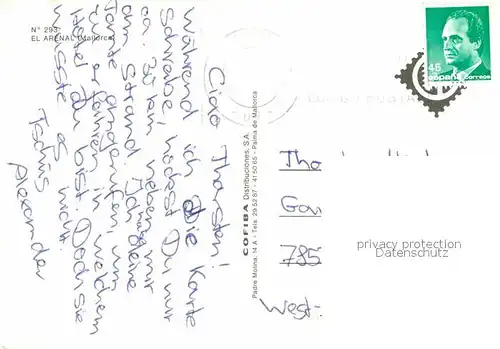 Nº 293
EL ARENAL (Mallorca)
Ciao Thorsten!
Während ich Die Karte
schreibe, hockest Du mir
ca. 30 cm neben mir
am Strand. Ich
Tante angerufen, um
zu erfahren in welchem
Hotel du bist. Doch sie
wusste es nicht.
Tschüs
Alexander
COFIBA Distribuciones, S.A.
Padre Molina, 14 A - Tels. 29 52 87 - 41 50 65 - Palma de Mallorca
45
España Correos
Tho
Gar
785
West-
privacy protection
Datenschutz